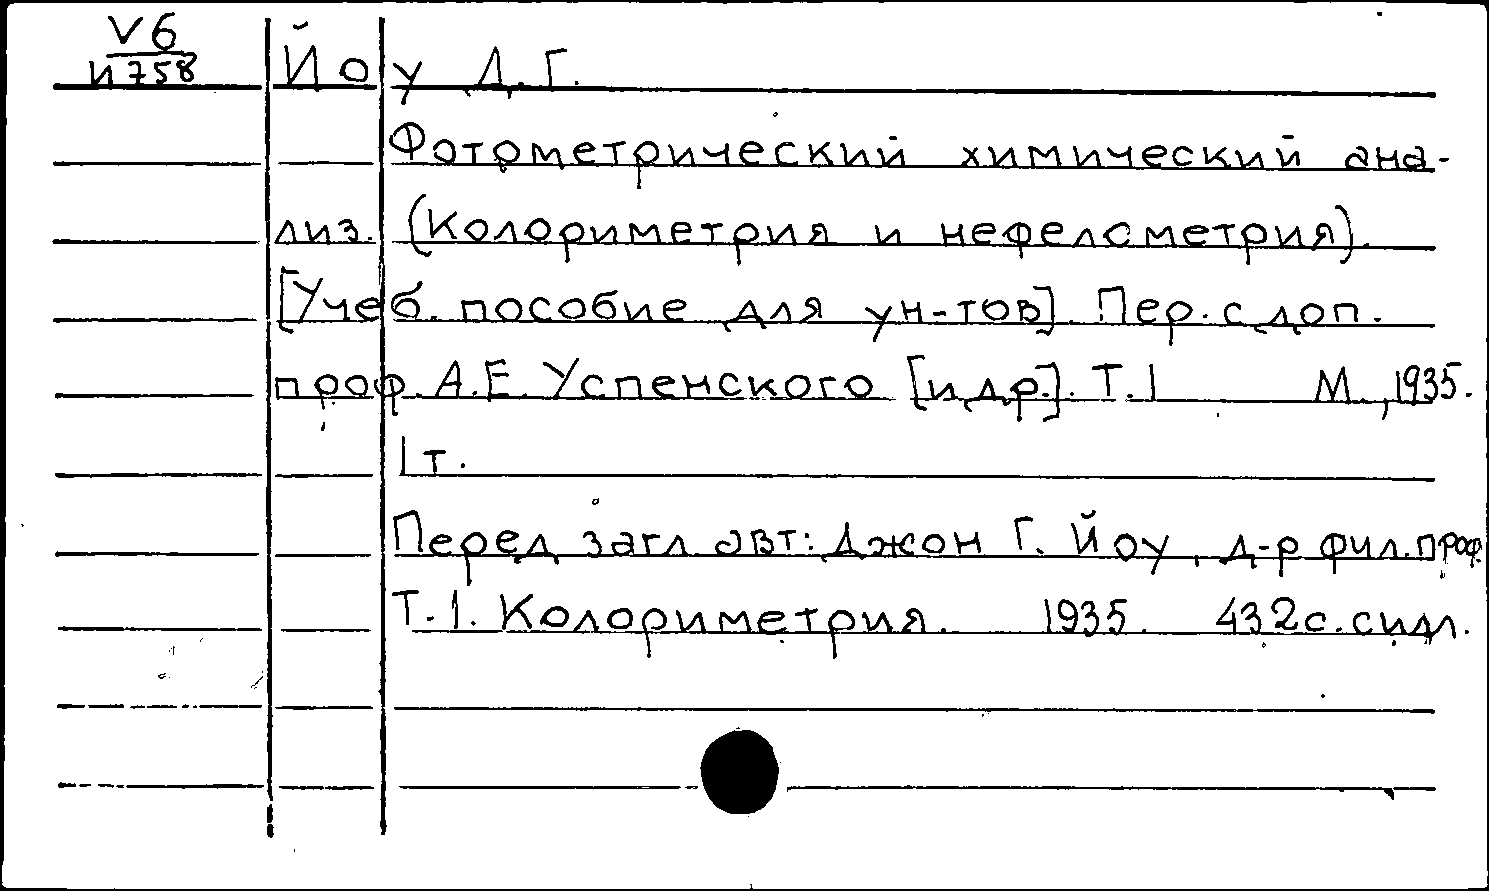 V6
И758
Йоу Д.Г.
Фотометрический химический ана-
лиз. (Колориметрия и нефелометрия).
[Учеб. пособие для ун-тов]. Пер. с доп.
проф. А.Е. Успенского [и др.]. Т.1 М., 1935.
1 т.
Перед загл. авт: Джон Г. Йоу, д-р фил. проф.
Т.1. Колориметрия. 1935. 432 с. с илл.